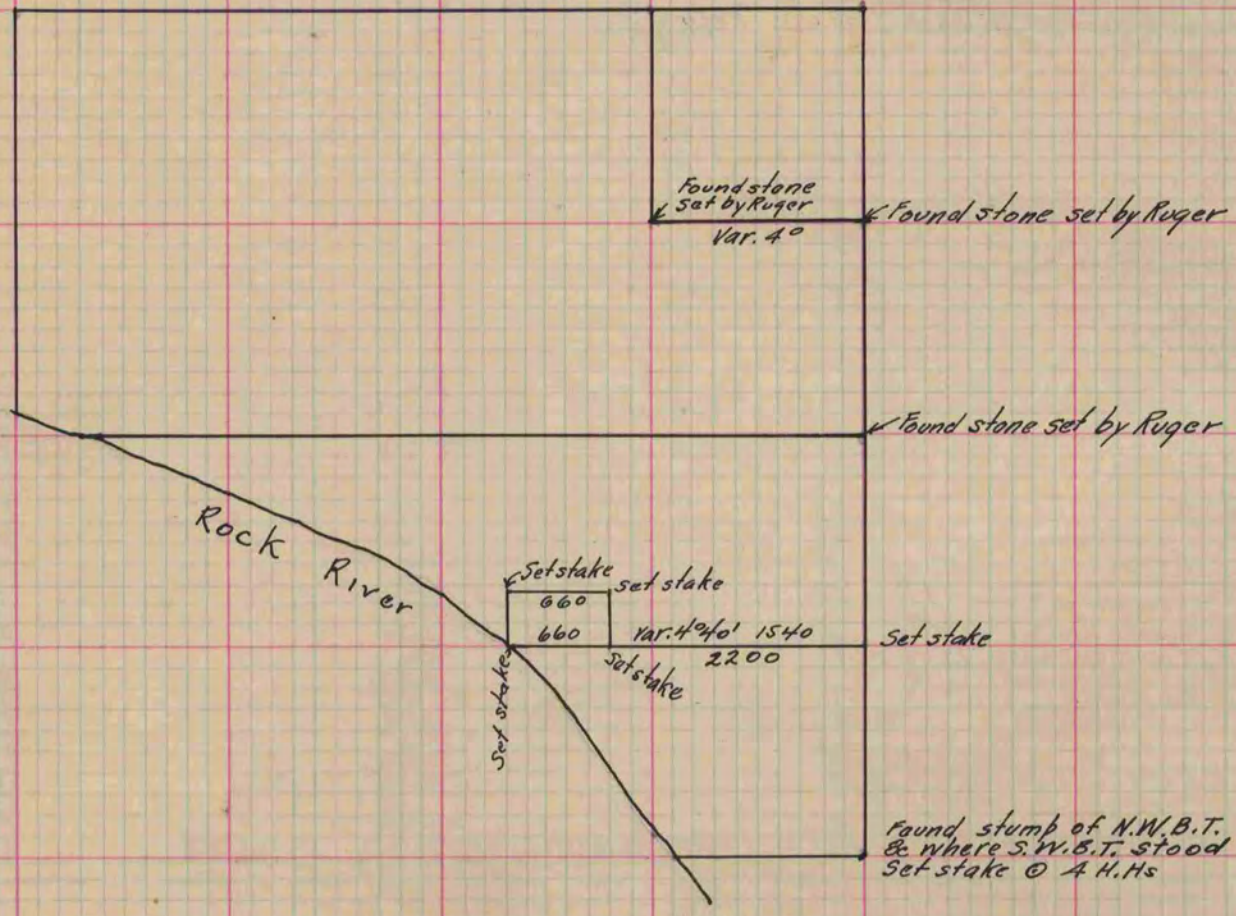 Found stone
set by Ruger
Var. 4°
Found stone set by Ruger
Found stone set by Ruger
Rock River
Set stake
set stake
660
660
Var. 4°40' 1540
2200
Set stake
Set stake
Set stake
Found stump of N.W.B.T.
& where S.W.B.T. stood
Set stake @ 4 H.Hs